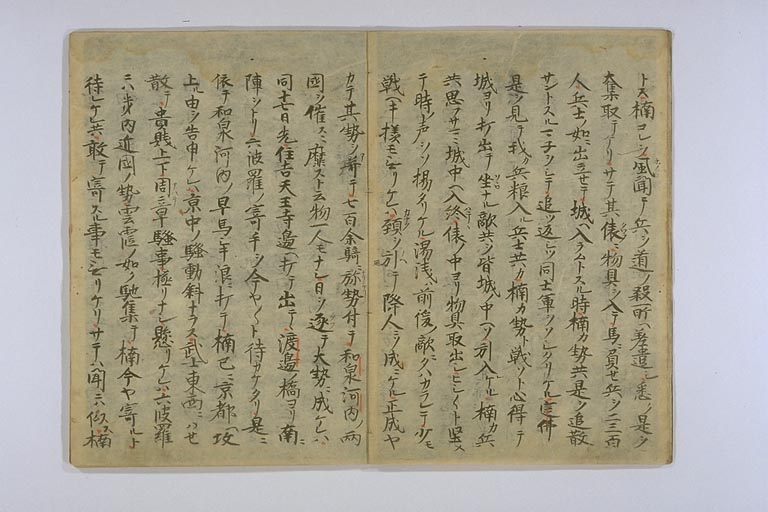 トス楠コレヲ風聞テ兵ヲ道ノ殺所ヘ差遣シ悉ク是ヲ
奪取テケリサテ其俵ニ物具ヲ入テ馬ニ負セ兵ヲ二三百
人兵士ノ如ニ出立セテ城ヘ入ラムトスル時楠カ勢共是ヲ追散
サントスルマネヲシテ追ツ返シツ同士軍ヲソシタリケル定仏
是ヲ見テ我カ兵粮入ル兵士共カ楠カ勢ト戦ソト心得テ
城ヨリ打出テ坐ナル敵共ヲ皆城中ヘソ引入ケル楠カ兵
共思フサマニ城中ヘ入終テ俵ノ中ヨリ物具取出シヒシ〱ト堅メ
テ時ノ声ヲソ揚タリケル湯浅ハ前後ノ敵ニハカラレテ少モ
戦ヘキ様モ無リケレハ頸ヲ引テ降人ニソ成ニケル正成ヤ
カテ其勢ヲ并テ七百余騎旅勢付テ和泉河内ノ両
国ヲ催スニ靡スト云物一人モナシ日ヲ逐テ大勢ニ成ケレハ
同七日先住吉天王寺邊ヘ打テ出テ渡邊橋ヨリ南ニ
陣ヲトリ六波羅ノ寄手ヲ今ヤ〱ト待カケタリ是ニ
依テ和泉河内ノ早馬シキ浪ニ打テ楠已ニ京都ヘ攻
上ル由ヲ告申ケレハ京中ノ騒動斜ナラス武士東西ニハせ
散テ貴賤上下周章騒事極リナシ懸リケレハ六波羅
ニハ内近國ノ勢雲霞ノ如ク馳集テ楠今ヤ寄ルト
待レケレ共敢テ寄スル事モ無リケリサテハ聞ニモ似ス楠